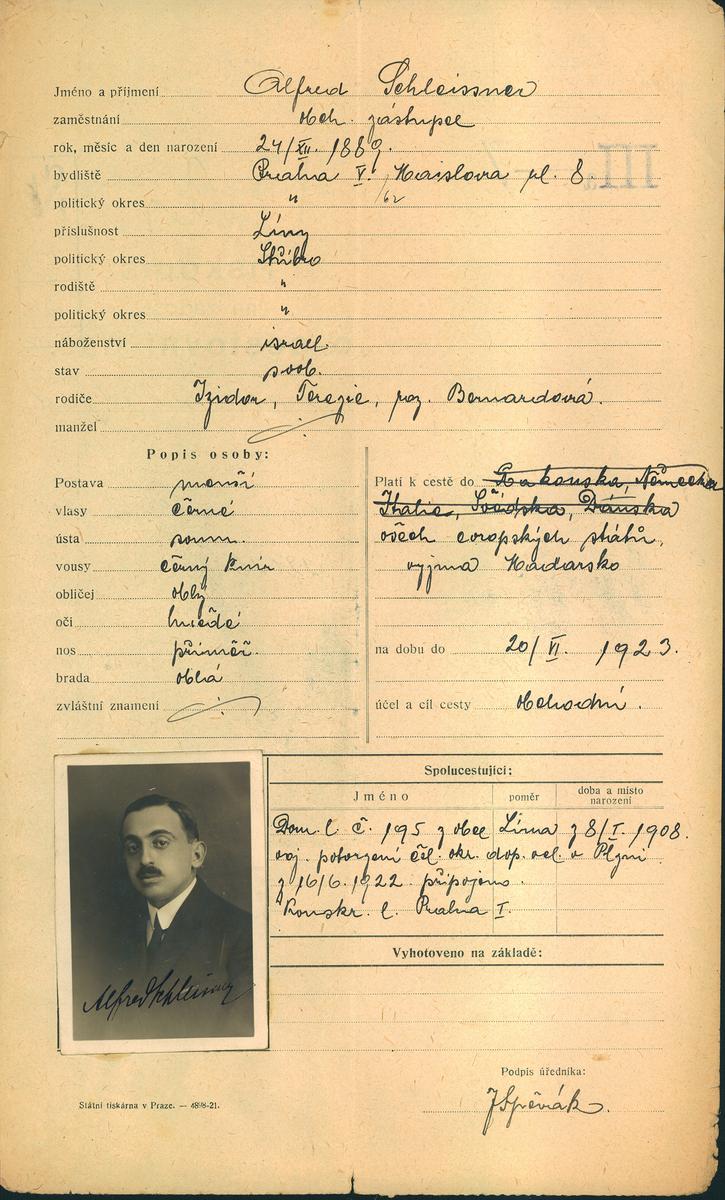 Jméno a příjmení Alfred Schleissner
zaměstnání obch. zástupce
rok, měsíc a den narození 24/XII. 1889.
bydliště Praha V. Maislova ul. 8.
III
politický okres " /62
příslušnost Líny
politický okres Stříbro
rodiště "
politický okres "
náboženství israel.
stav svob.
rodiče Izidor, Terezie, roz. Bernardová.
manžel
Popis osoby:
Postava menší
vlasy černé
ústa soum.
vousy černý knír
obličej oblý
oči hnědé
nos přiměř.
brada oblá
zvláštní znamení
Platí k cestě do Rakouska, Německa
Italie, Švédska, Dánska
všech evropských států,
vyjma Maďarsko
na dobu do 20/VI. 1923.
účel a cíl cesty obchodní.
Spolucestující:
Jméno poměr doba a místo narození
Dom. l. č. 195 z obce Líma z 8/I. 1908.
voj. potvrzení čsl. okr. dop. vel. v Plzni
z 16/6. 1922 připojeno.
Konskr. l. Praha I.
Vyhotoveno na základě:
Alfred Schleissner
Podpis úředníka:
JSpěvák
Státní tiskárna v Praze. — 4898-21.